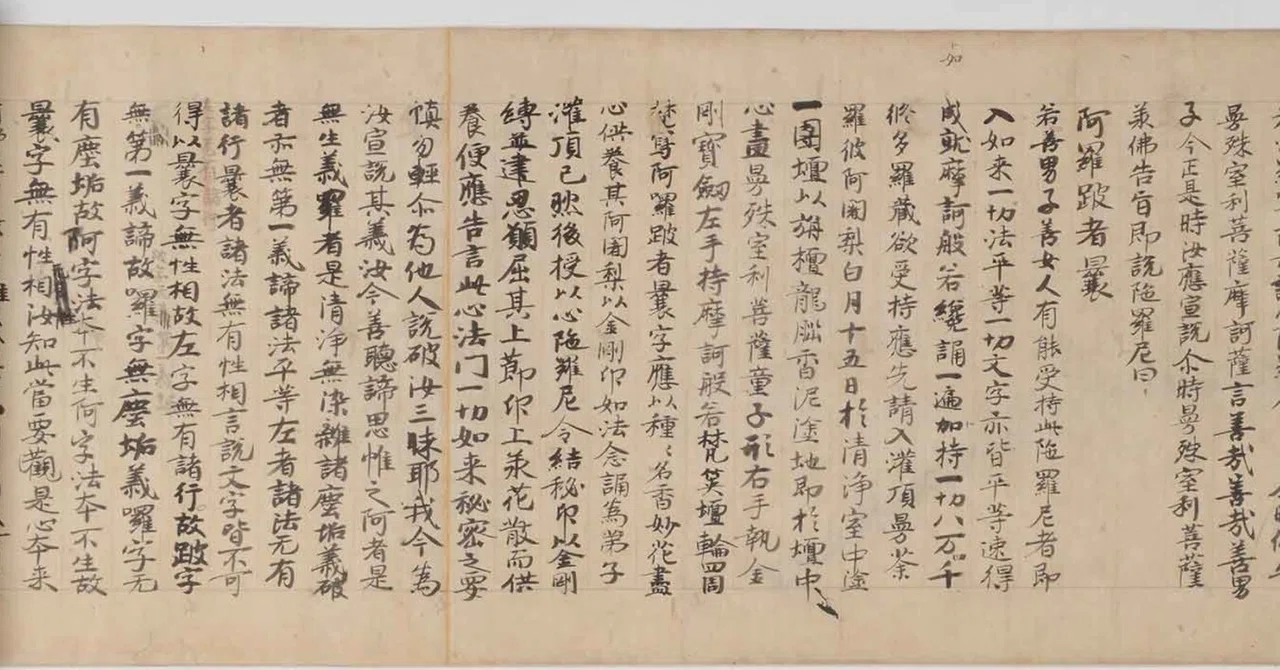 曼殊室利菩薩摩訶薩言善哉善哉善男
子今正是時汝應宣說尒時曼殊室利菩薩
承佛告旨即說陁羅尼曰
阿羅跛者曩
若善男子善女人有能受持此陁羅尼者即
入如来一切法平等一切文字亦皆平等速得
成就摩訶般若纔誦一遍如持一切八万四千
如
修多羅藏欲受持應先請入灌頂曼荼
羅彼阿闍梨白月十五日於清淨室中塗
一團壇以旃檀龍脳香泥塗地即於壇中
心畫曼殊室利菩薩童子形右手執金
剛寶劔左手持摩訶般若梵筴壇輪四周
梵寫阿羅跛者曩字應以種〻名香妙花盡
心供養其阿闍梨以金剛印如法念誦為弟子
灌頂已然後授以心陁羅尼令結秘印以金剛
縛並建忍願屈其上莭印上承花散而供
養便應告言此心法門一切如来秘密之要
慎勿輕尒為他人說破汝三昧耶我今為
汝宣說其義汝今善聽諦思惟之阿者是
無生義羅者是清淨無染離諸塵垢義跛
者亦無第一義諦諸法平等左者諸法无有
諸行曩者諸法無有性相言說文字皆不可
得以曩字無性相故左字無有諸行故跛字
無第一義諦故囉字無塵垢義囉字无
有塵垢故阿字法本不生何字法本不生故
曩字無有性相汝知此當要觀是心本来